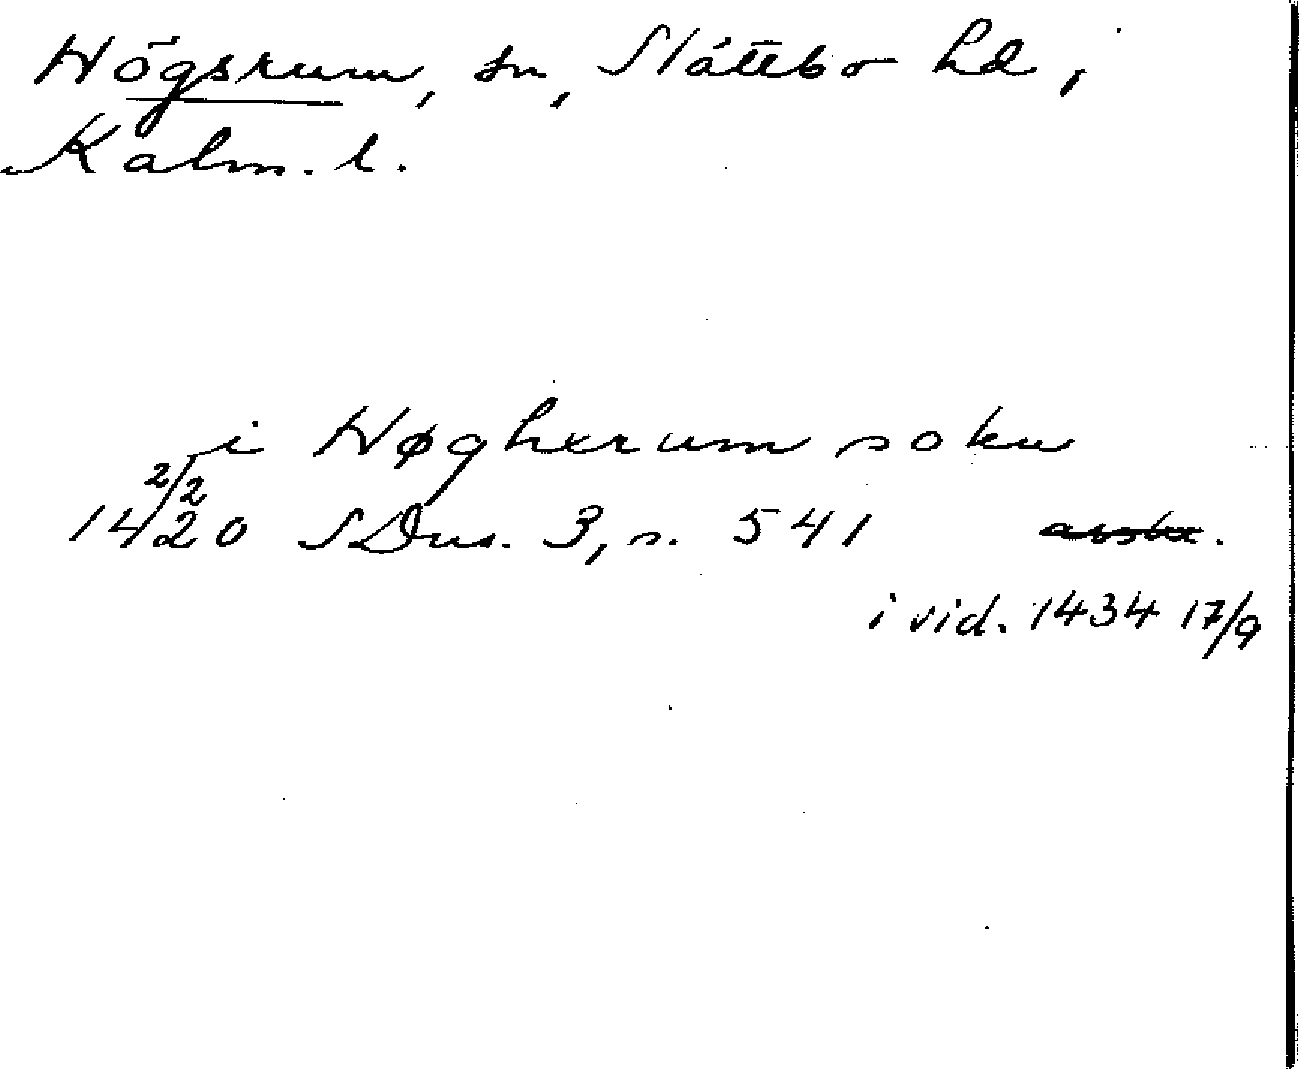 Högsrum, sn, Slättbo hd,
Kalm. l.
i Høghxrum sokn
1420 2/2 SDns. 3, s. 541 avskr.
i vid. 1434 17/9